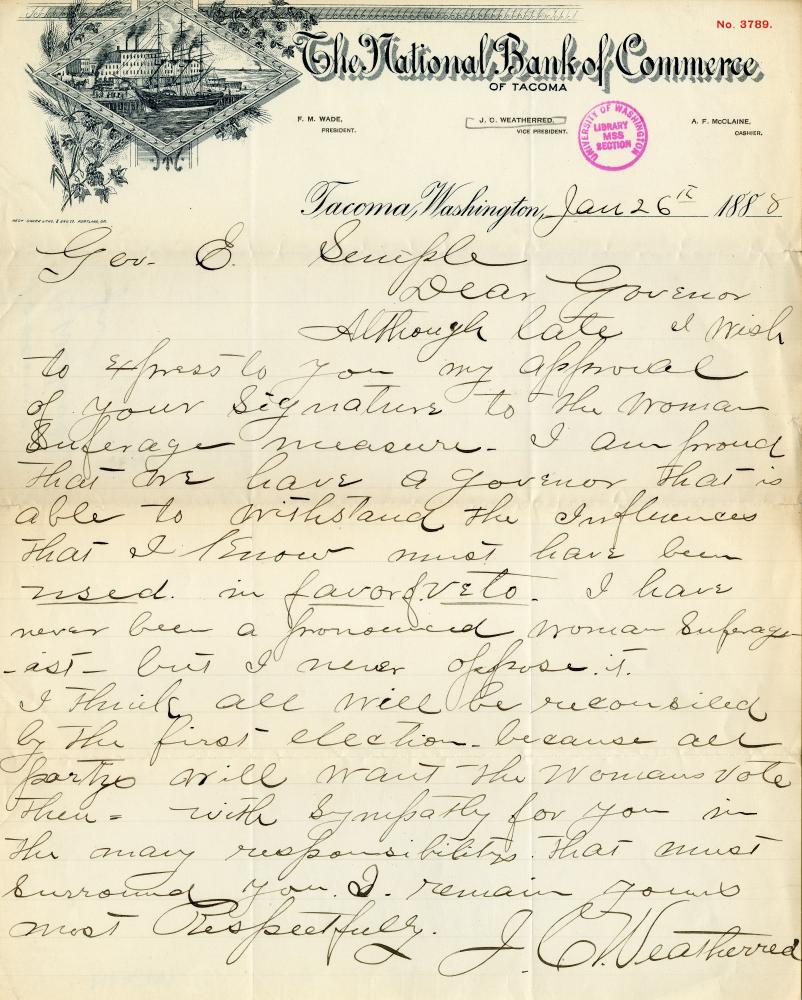 No. 3789.
The National Bank of Commerce
OF TACOMA
F. M. WADE,
PRESIDENT.
J. C. WEATHERRED,
VICE PRESIDENT.
A. F. McCLAINE,
CASHIER.
UNIVERSITY OF WASHINGTON
LIBRARY
MSS
SECTION
Tacoma, Washington, Jan 26th 1888
Gov. E. Semple
Dear Govenor
Although late I wish
to express to you my approval
of your Signature to the Woman
Suferage measure - I am proud
that we have a govenor that is
able to withstand the Influences
that I know must have been
used in favor of veto. I have
never been a pronounced woman Suferage
-ist- but I never oppose it.
I think all will be reconsiled
by the first election - because all
partys will want the Womans vote
then = with Sympathy for you in
the many responsibilitys that must
Surround you. I remain yours
most Respectfully.
J. C. Weatherred